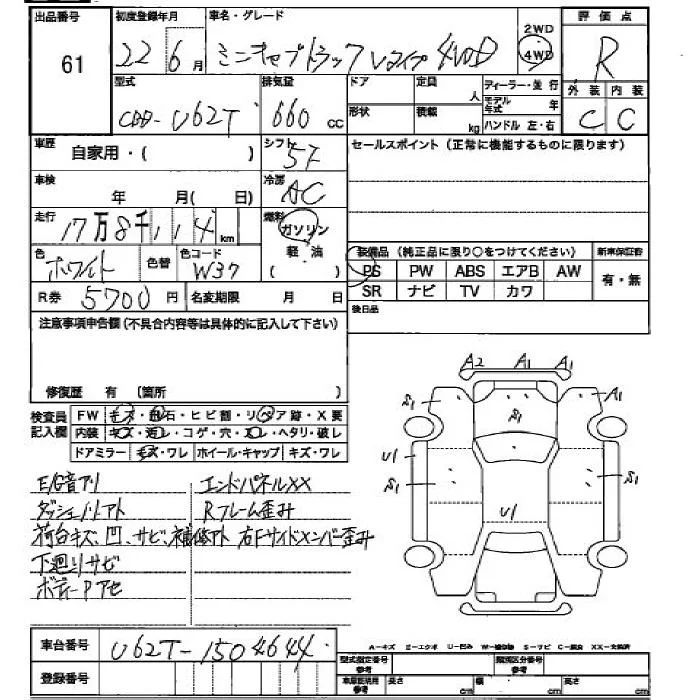 出品番号 初度登録年月 車名・グレード 2WD 評価点
61 22 6月 ミニキャブトラック Vタイプ 4WD 4WD R
型式 排気量 ドア 定員 人 ディーラー・並行 外装 内装
CBD-U62T 660cc 形状 積載 kg モデル年式 年 C C
ハンドル 左・右
車歴 自家用・( ) シフト 5F セールスポイント (正常に機能するものに限ります)
車検 年 月( 日) 冷房 AC
走行 17万8千114km 燃料 ガソリン
軽・油
( )
色 ホワイト 色替 色コード W37 装備品 (純正品に限り○をつけてください) 新車保証書
PS PW ABS エアB AW 有・無
R券 5700円 名変期限 月 日 SR ナビ TV カワ
注意事項申告欄 (不具合内容等は具体的に記入して下さい) 後日品
修復歴 有 (箇所 )
検査員 記入欄 FW キズ・飛石・ヒビ割・リペア跡・X要
内装 キズ・汚レ・コゲ・穴・スレ・ヘタリ・破レ
ドアミラー キズ・ワレ ホイール・キャップ キズ・ワレ
A2 A1 A1
S1 S1 A1
U1
S1 S1
U1
E/G音アリ エンドパネルXX
ダッシュノリアト Rフレーム歪み
荷台キズ、凹、サビ、補修アト 右Fサイドメンバー歪み
下廻りサビ
ボデーPアセ
車台番号 U62T-1504644
A-キズ E-エクボ U-凹み W-補修跡 S-サビ C-腐食 XX-交換済
登録番号 型式指定番号 類別区分番号
車庫証明用参考 長さ cm 幅 cm 高さ cm